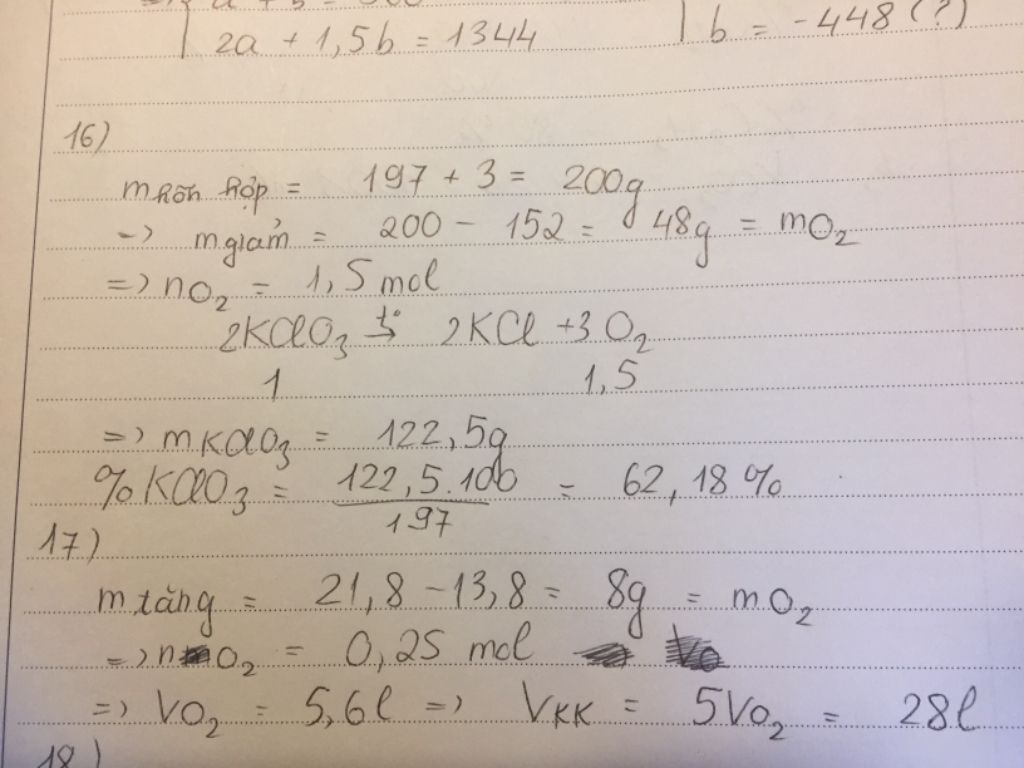 2a + 1,5b = 1344 b = -448 (?)
16)
m hỗn hợp = 197 + 3 = 200g
-> m giảm = 200 - 152 = 48g = mO2
=> nO2 = 1,5 mol
2KClO3 t°→ 2KCl + 3O2
1 1,5
=> mKClO3 = 122,5g
%KClO3 = 122,5.100 = 62,18%
197
17)
m tăng = 21,8 - 13,8 = 8g = mO2
=> nO2 = 0,25 mol
=> VO2 = 5,6l => VKK = 5VO2 = 28l
18)